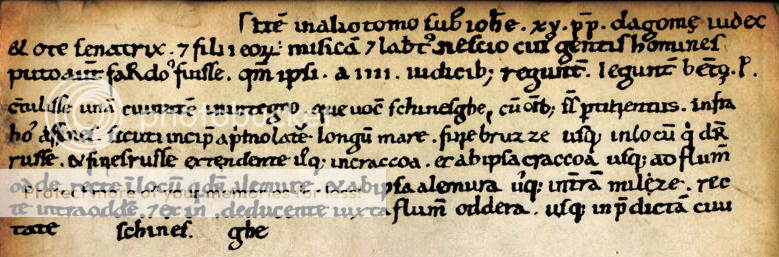 Itē in alio tomo sub iohe . xv . pp . dagome iudex
& ote senatrix . 7 filii eoꝝ misicā 7 labtꝰ nescio cuiꝰ gentis homines
puto autē sardoˢ fuisse . qm̄ ipsi . a IIII . iudicib; regunt̄ . legunt̄ beto . P .
ctulisse unā in integro . que uoc̄ schinesghe cū oīb; suis ptinentiis . infra
hoˢ affines . sicuti incipit a primo latere longū mare . fine bruzze usq; in locū q̄ dr̄
russe . & fines russe extendente usq; in craccoa . et ab ipsa craccoa usq; ad flum̄
recte in locū q̄ dr̄ alemure . et ab ipsa alemura usq; in trā milczе . rec
te intra oddere . 7 exin . deducente iuxta flum̄ oddera . usq; in p̄dictā ciui
tate schines . ghe
photobucket
Protect more of your memories for less!